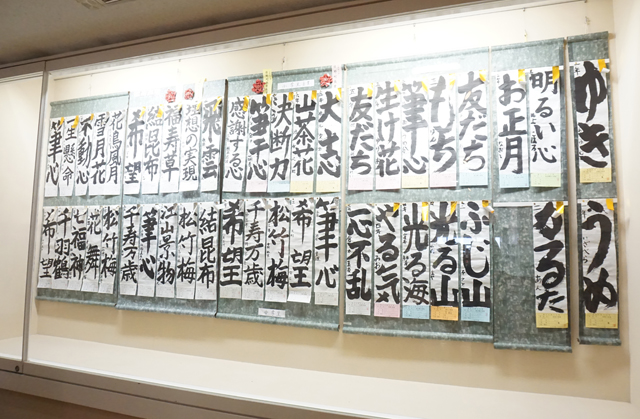 ゆき
明るい心
お正月
友だち
もち
筆心
生け花
友だち
大志
山茶花
決断力
筆心
感謝する心
飛雲
理想の実現
福寿草
結昆布
希望
花鳥風月
雪月花
不動心
一生懸命
筆心
うめ
かるた
ふじ山
光る山
光る海
やる気
一心不乱
筆心
希望
松竹梅
千寿万歳
希望
結昆布
松竹梅
江山景物
筆心
千寿万歳
松竹梅
花舞
七福神
千羽鶴
希望